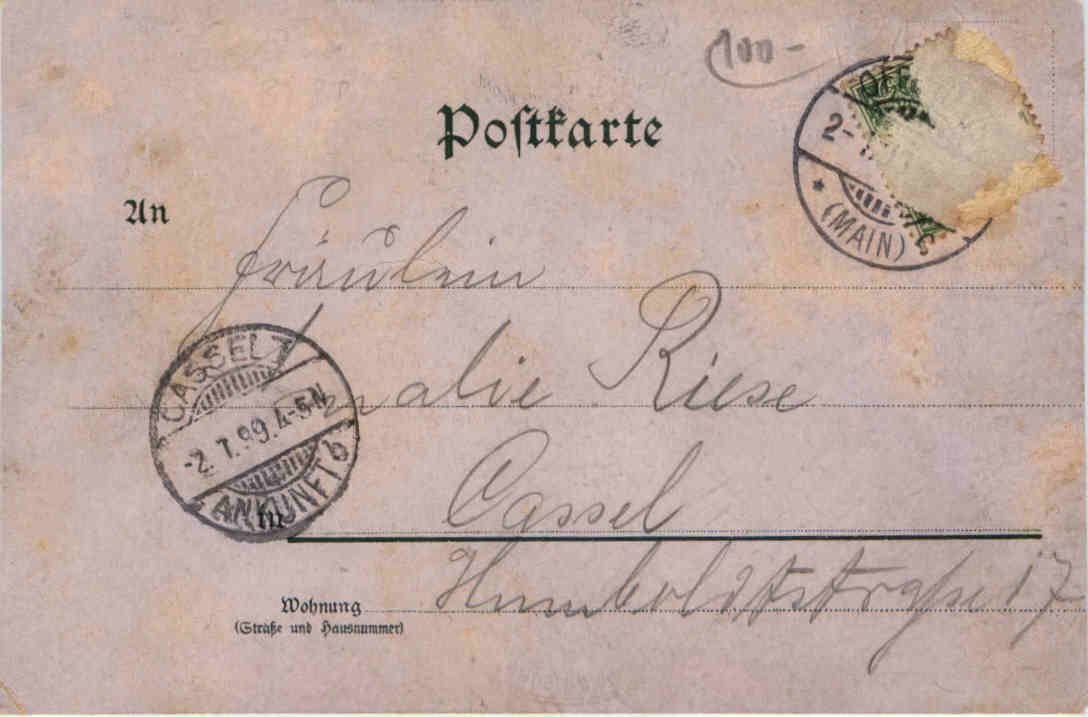 100-
Postkarte
2-
(MAIN)
An
Fräulein
Amalie Riese
CASSEL 1
-2.1.99.4-5N
ANKUNFT b
in Cassel
Wohnung Humboldtstraße 17
(Straße und Hausnummer)